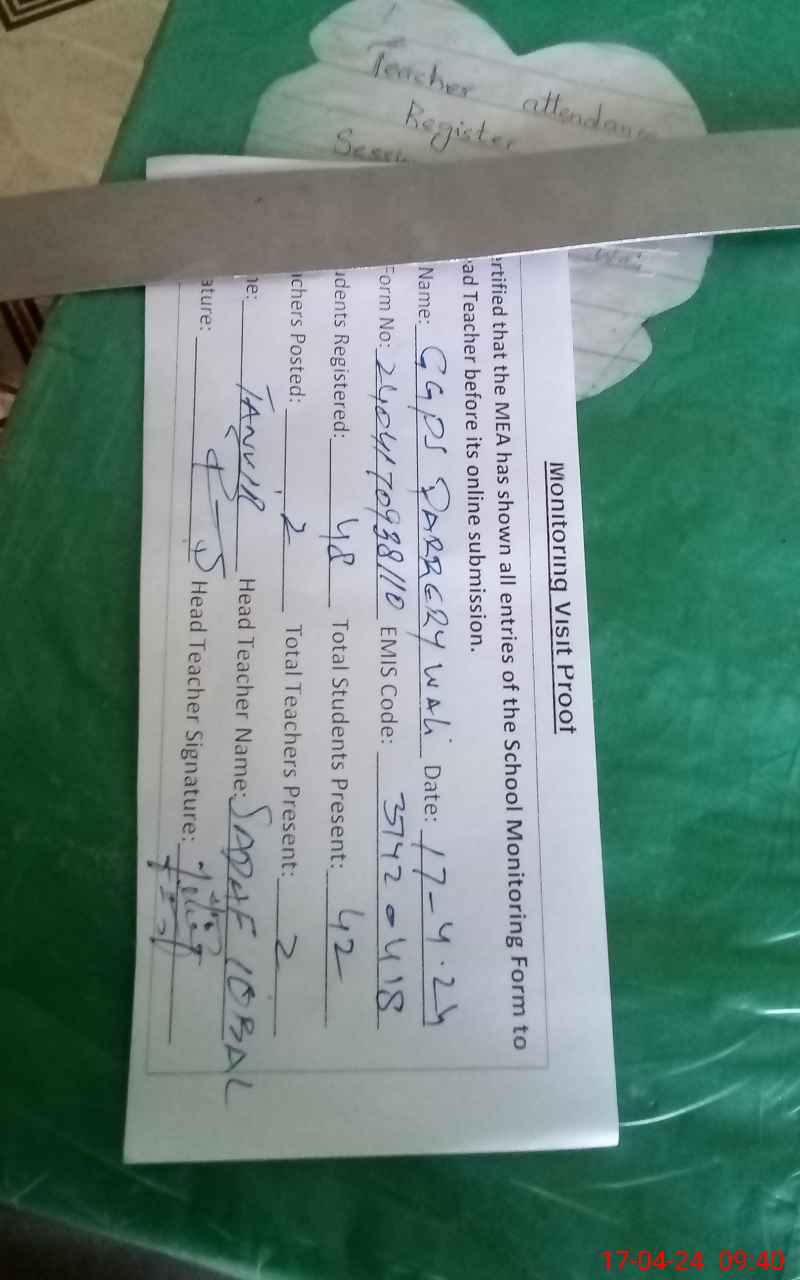 Teacher attendance
Register
Monitoring Visit Proof
ertified that the MEA has shown all entries of the School Monitoring Form to
ad Teacher before its online submission.
Name: GGPS DARRERY WALI Date: 17-4-24
Form No: 2404170938110 EMIS Code: 37420418
udents Registered: 48 Total Students Present: 42
chers Posted: 2 Total Teachers Present: 2
ne: TANVIR Head Teacher Name: SADAF IQBAL
ature: Head Teacher Signature:
17-04-24 09:40